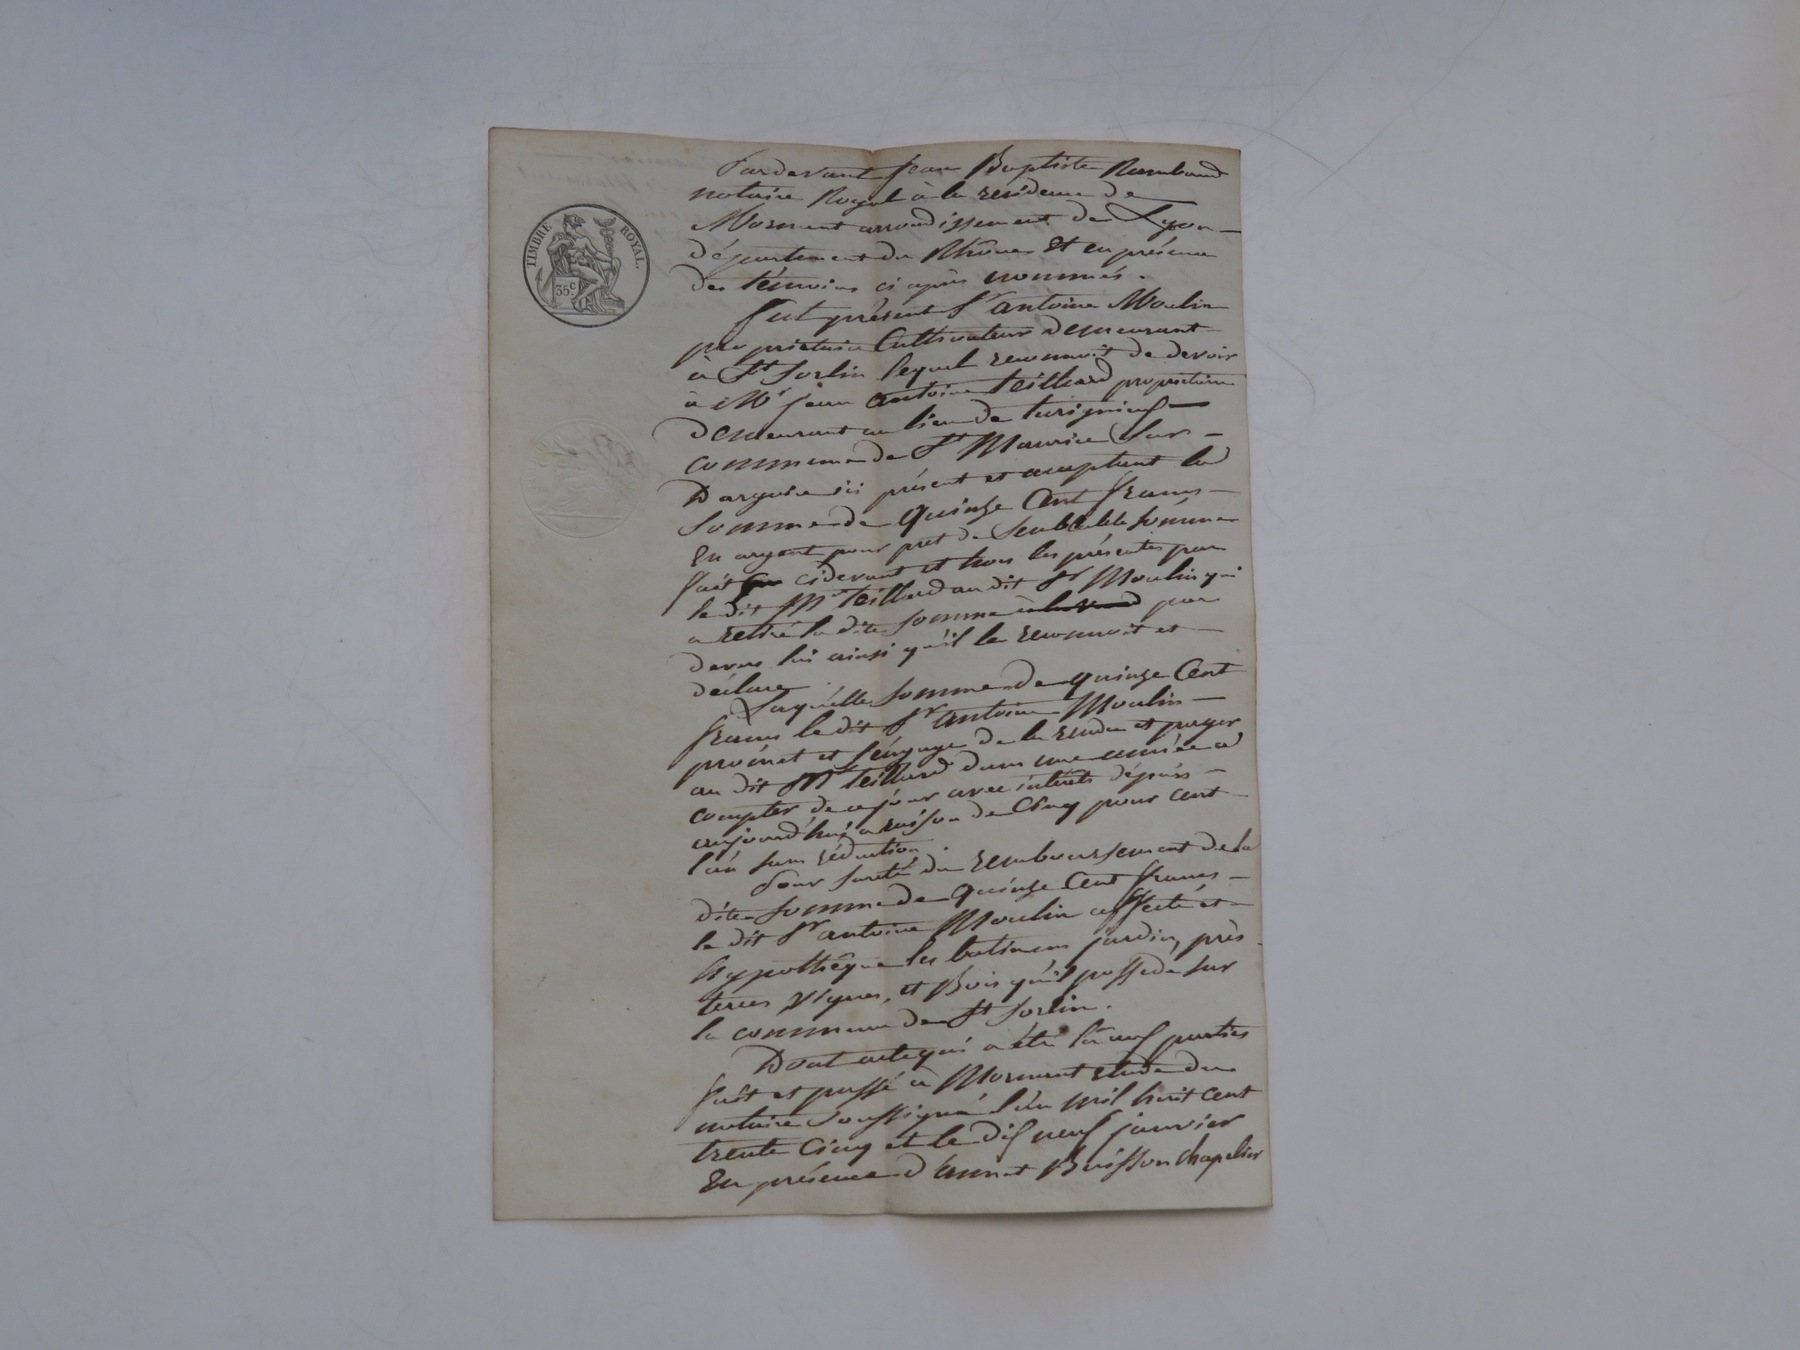 TIMBRE ROYAL.
35c.
Pardevant Jean Baptiste Rambaud
notaire Royal à la residence de
Mornant arrondissement de Lyon
département du Rhône Et en présence
des témoins ci après nommés.
fut présent Sr antoine Moulin
propriétaire Cultivateur demeurant
à St Sorlin lequel reconnait de devoir
à Mr jean Antoine teillard propriétaire
demeurant au lieu de
commune de St Maurice Sur
Dargoire ici présent et acceptant la
Somme de Quinze Cent francs
En argent pour pret de Semblable Somme
fait cidevant et hors les présentes par
le dit Mr teillard au dit Sr Moulin qui
a retiré la dite Somme par
devers lui ainsi qu'il le reconnoit et
déclare.
Laquelle Somme de quinze Cent
francs le dit Sr antoine Moulin
promet et s'éngage de la rendre et payer
au dit Mr teillard dans une année a
compter de ce jour avec intérêts dépuis
aujourd'hui a raison de Cinq pour cent
l'an sans réduction.
Pour sureté du remboursement de la
dite Somme de quinze Cent francs
le dit Sr antoine Moulin affecte et
hypothêque les batimens jardin, près
terres vignes, et Bois qu'il possede sur
la commune de St Sorlin.
Dont acte qui a été lu aux parties
fait et passé à Mornant etude du
notaire Soussigné l'an mil huit cent
trente Cinq et le dix neuf janvier
En présence d'annet Buisson chapelier